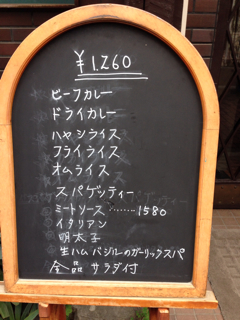 ¥1,260
ビーフカレー
ドライカレー
ハヤシライス
フライライス
オムライス
スパゲッティー
ミートソース………1580
イタリアン
明太子
生ハムバジルのガーリックスパ
全品 サラダ付